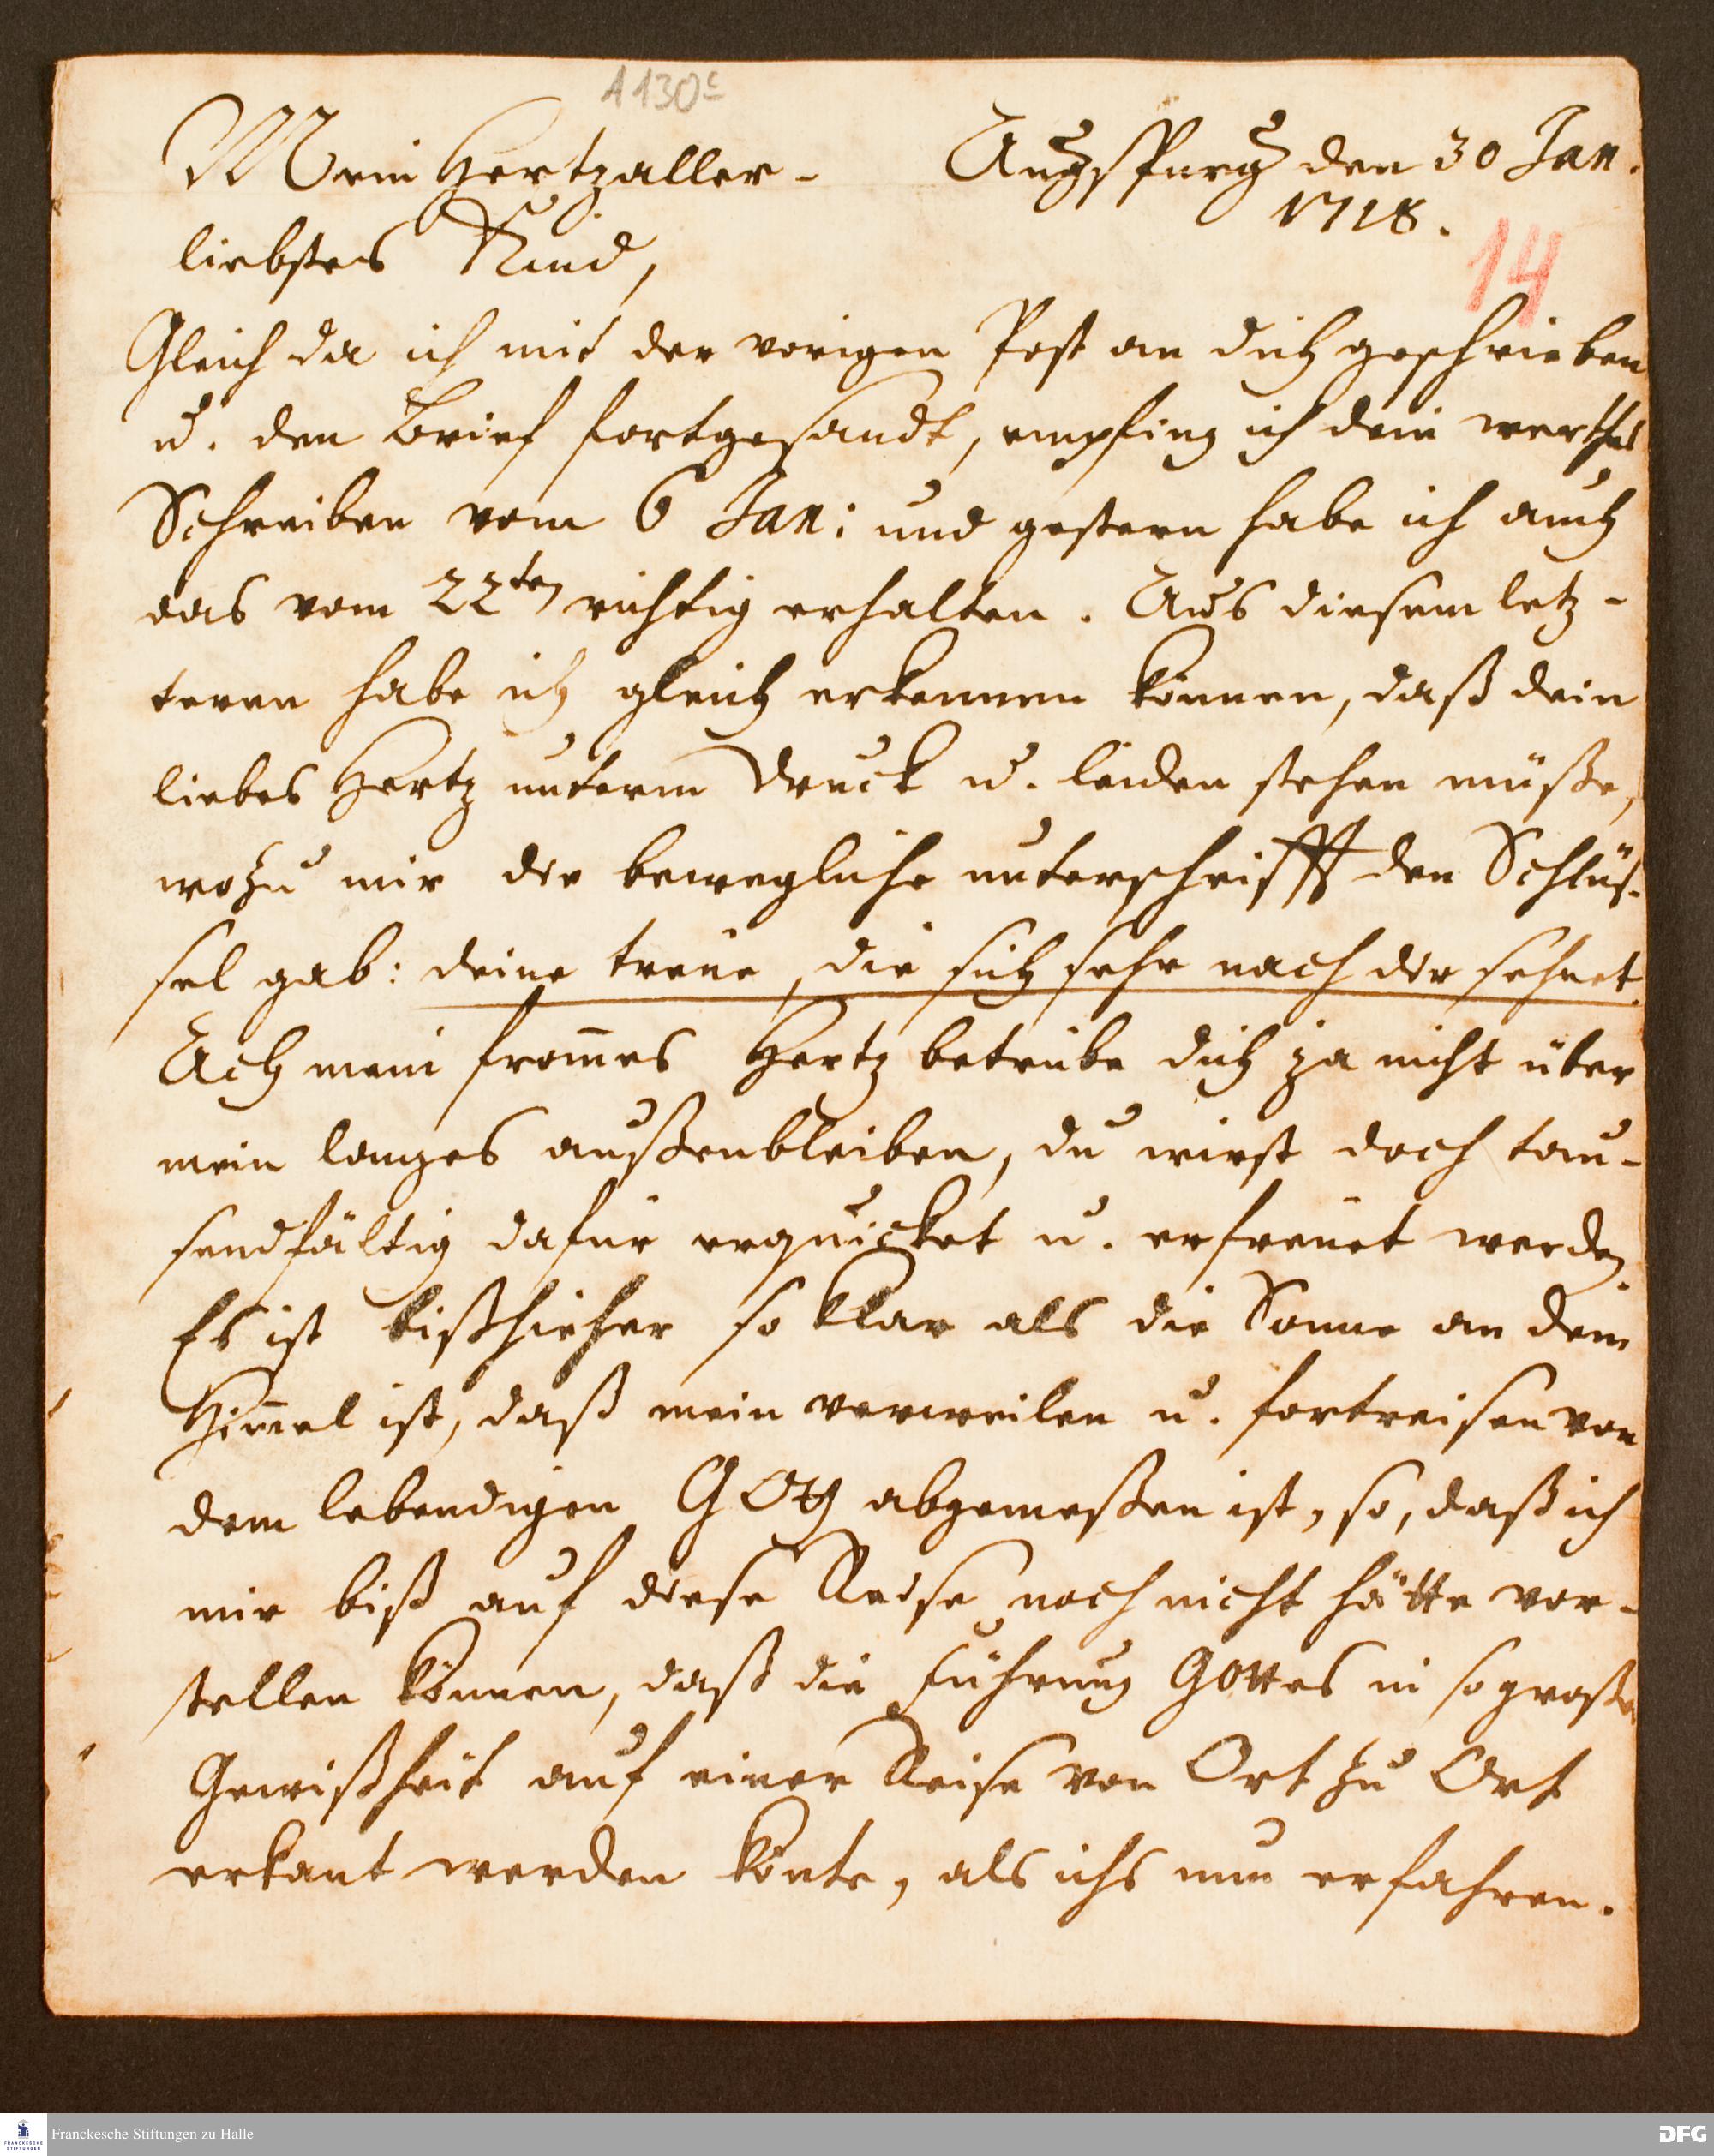 A 130 c
Mein Hertzaller-
Augspurg den 30 Jan.
1718.
liebstes Kind,
14
Gleich da ich mit der vorigen Post an dich geschrieben
u. den Brief fortgesandt, empfing ich dein werthes
Schreiben vom 6 Jan: und gestern habe ich auch
das vom 22ten richtig erhalten. Aus diesem letz-
teren habe ich gleich erkennen können, daß dein
liebes Hertz unterm Druck u. leiden stehen müße,
wozu mir die bewegliche unterschrifft den Schlüs-
sel gab: deine treüe, die sich sehr nach dir sehnet.
Ach mein from̅es Hertz betrübe dich ja nicht über
mein langes außenbleiben, du wirst doch tau-
sendfältig dafür erquicket u. erfreüet werden.
Es ist bißhieher so klar als die Sonne an dem
Him̅el ist, daß mein verweilen u. fortreisen von
dem lebendigen GOtt abgemeßen ist, so, daß ich
mir biß auf diese Reise noch nicht hätte vor-
stellen können, daß die führung GOttes in so großer
Gewißheit auf einer Reise von Ort zu Ort
erkant werden könte, als ichs nun erfahren.
Franckesche Stiftungen zu Halle
FRANCKESCHE
STIFTUNGEN
DFG